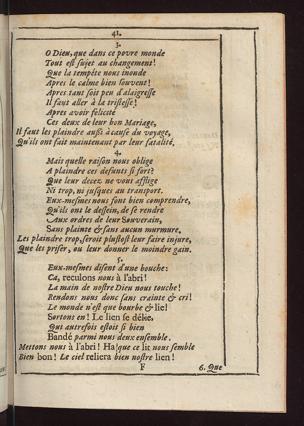 41.
3.
O Dieu, que dans ce povre monde
Tout est sujet au changement!
Que la tempête nous inonde
Apres le calme bien souvent!
Apres tant soit peu d'alaigresse
Il faut aller à la tristesse!
Apres avoir felicité
Ces deux de leur bon Mariage,
Il faut les plaindre aussi à cause du voyage,
Qu'ils ont fait maintenant par leur fatalité.
4.
Mais quelle raison nous oblige
A plaindre ces defunts si fort?
Que leur decez ne vous afflige
Ni trop, ni jusques au transport.
Eux-mesmes nous font bien comprendre,
Qu'ils ont le dessein, de se rendre
Aux ordres de leur Souverain,
Sans plainte & sans aucun murmure.
Les plaindre trop, seroit plustost leur faire injure,
Que les priser, ou leur donner le moindre gain.
5.
Eux-mesmes disent d'une bouche:
Ca, reculons nous à l'abri!
La main de nostre Dieu nous touche!
Rendons nous donc sans crainte & cri!
Le monde n'est que bourbe & lie!
Sortons en! Le lien se délie,
Qui autresfois estoit si bien
Bandé parmi nous deux ensemble.
Mettons nous à l'abri! Ha! que ce lit nous semble
Bien bon! Le ciel reliera bien nostre lien!
F
6. Que